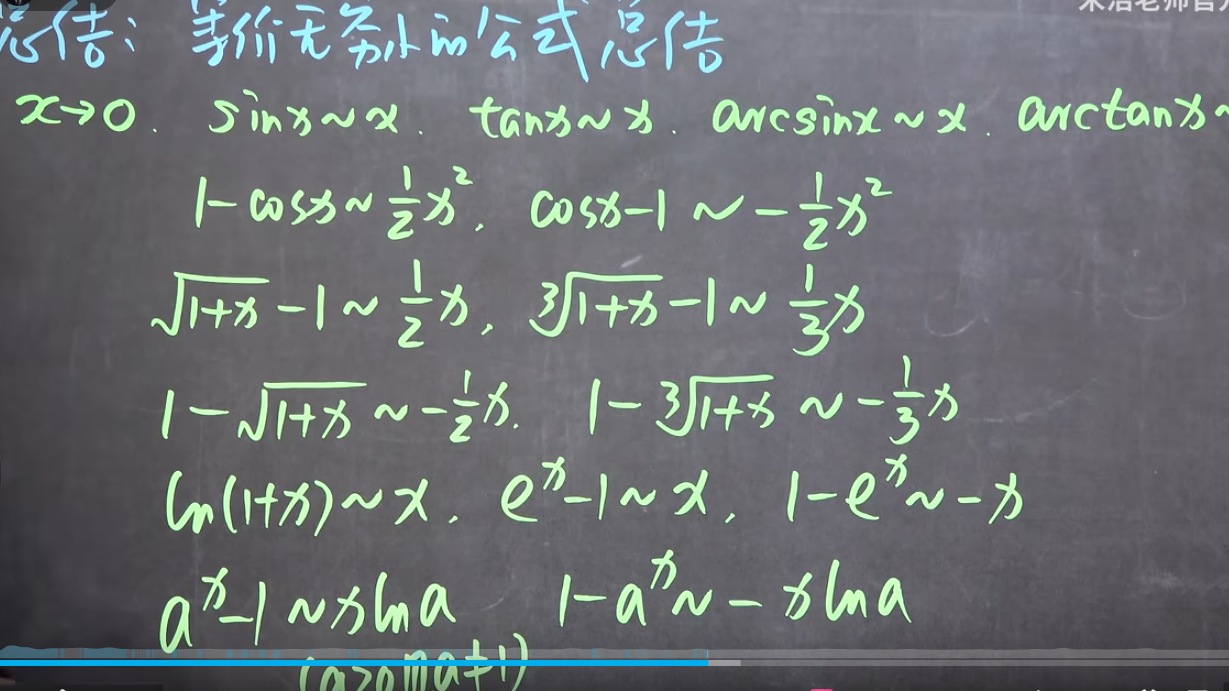 宋浩老师官方
总结：等价无穷小的公式总结
x→0. sinx~x. tanx~x. arcsinx~x. arctanx~
1-cosx~\frac{1}{2}x², cosx-1~-\frac{1}{2}x²
√(1+x)-1~\frac{1}{2}x, ³√(1+x)-1~\frac{1}{3}x
1-√(1+x)~-\frac{1}{2}x. 1-³√(1+x)~-\frac{1}{3}x
ln(1+x)~x. eˣ-1~x, 1-eˣ~-x
aˣ-1~xlna 1-aˣ~-xlna
(a>0且a≠1)